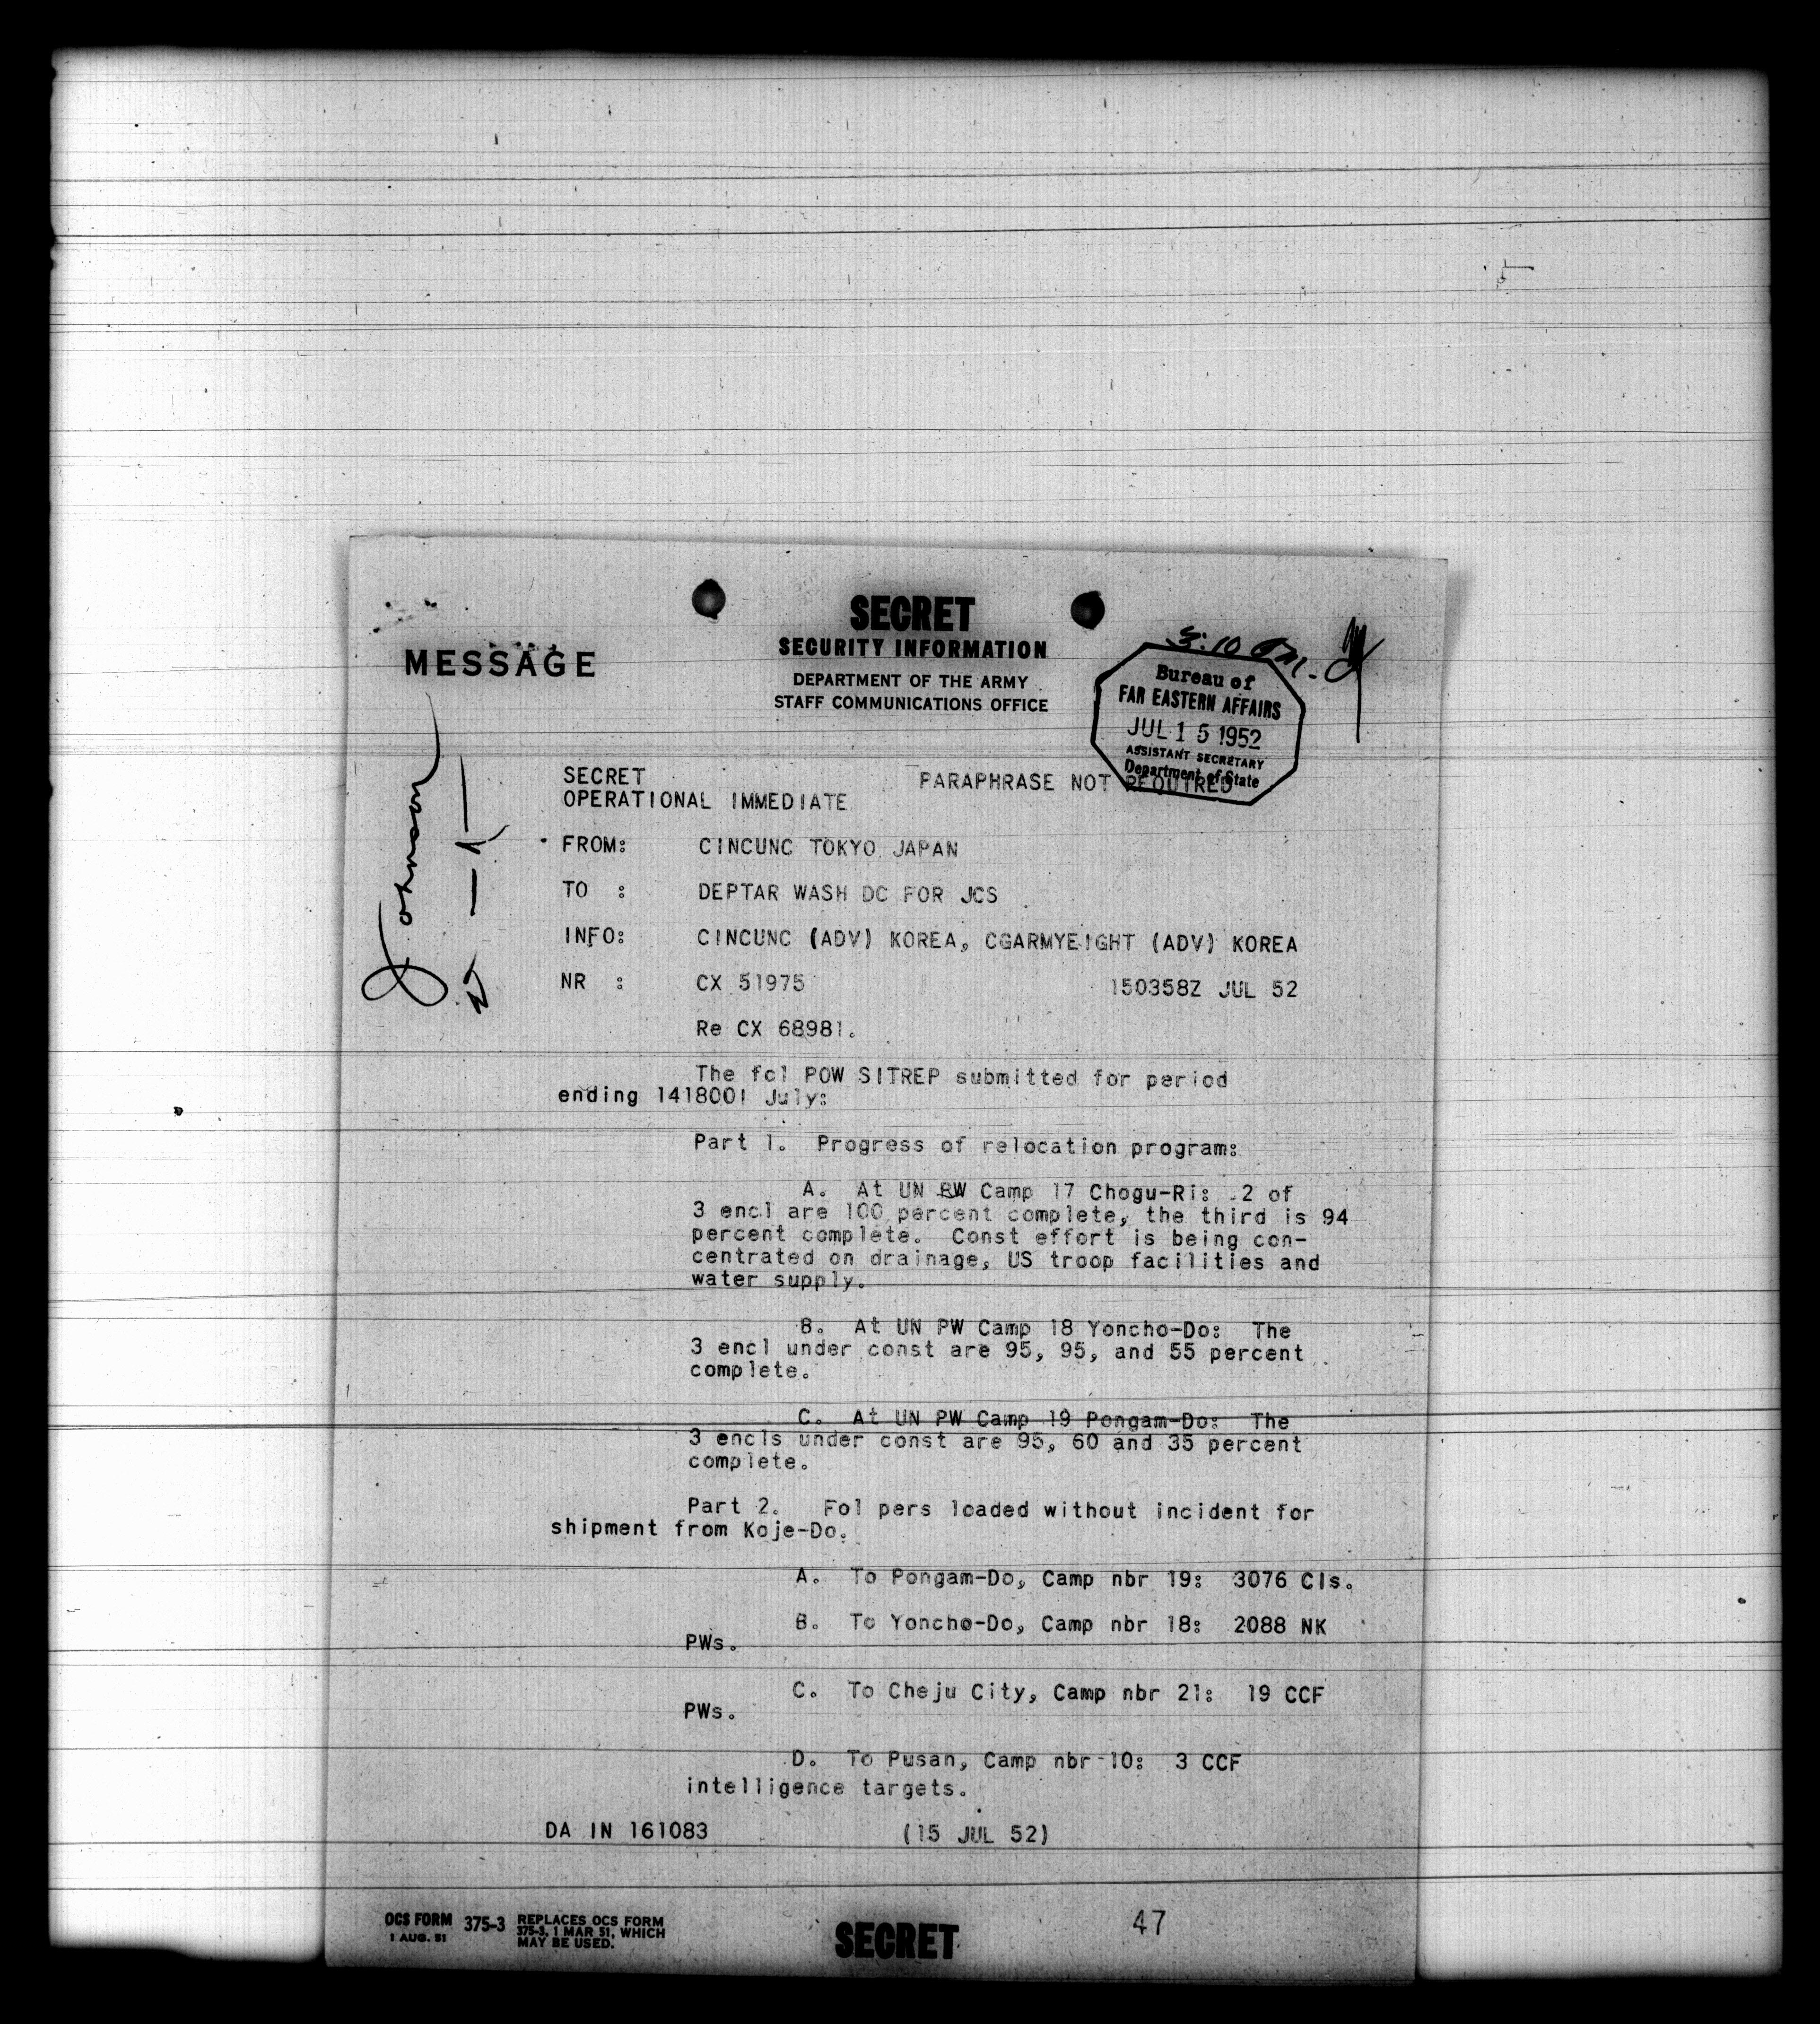 SECRET
SECURITY INFORMATION
MESSAGE
DEPARTMENT OF THE ARMY
STAFF COMMUNICATIONS OFFICE
Bureau of
FAR EASTERN AFFAIRS
JUL 15 1952
ASSISTANT SECRETARY
Department of State
Johnson
SECRET
PARAPHRASE NOT REQUIRED
OPERATIONAL IMMEDIATE
FROM: CINCUNC TOKYO JAPAN
TO : DEPTAR WASH DC FOR JCS
INFO: CINCUNC (ADV) KOREA, CGARMYEIGHT (ADV) KOREA
NR : CX 51975 150358Z JUL 52
Re CX 68981.
The fol POW SITREP submitted for period
ending 141800I July:
Part 1. Progress of relocation program:
A. At UN PW Camp 17 Chogu-Ri: 2 of
3 encl are 100 percent complete, the third is 94
percent complete. Const effort is being con-
centrated on drainage, US troop facilities and
water supply.
B. At UN PW Camp 18 Yoncho-Do: The
3 encl under const are 95, 95, and 55 percent
complete.
C. At UN PW Camp 19 Pongam-Do: The
3 encls under const are 95, 60 and 35 percent
complete.
Part 2. Fol pers loaded without incident for
shipment from Koje-Do.
A. To Pongam-Do, Camp nbr 19: 3076 CIs.
B. To Yoncho-Do, Camp nbr 18: 2088 NK
PWs.
C. To Cheju City, Camp nbr 21: 19 CCF
PWs.
D. To Pusan, Camp nbr 10: 3 CCF
intelligence targets.
DA IN 161083 (15 JUL 52)
OCS FORM 375-3 REPLACES OCS FORM
1 AUG. 51 375-3, 1 MAR 51, WHICH
MAY BE USED.
SECRET
47